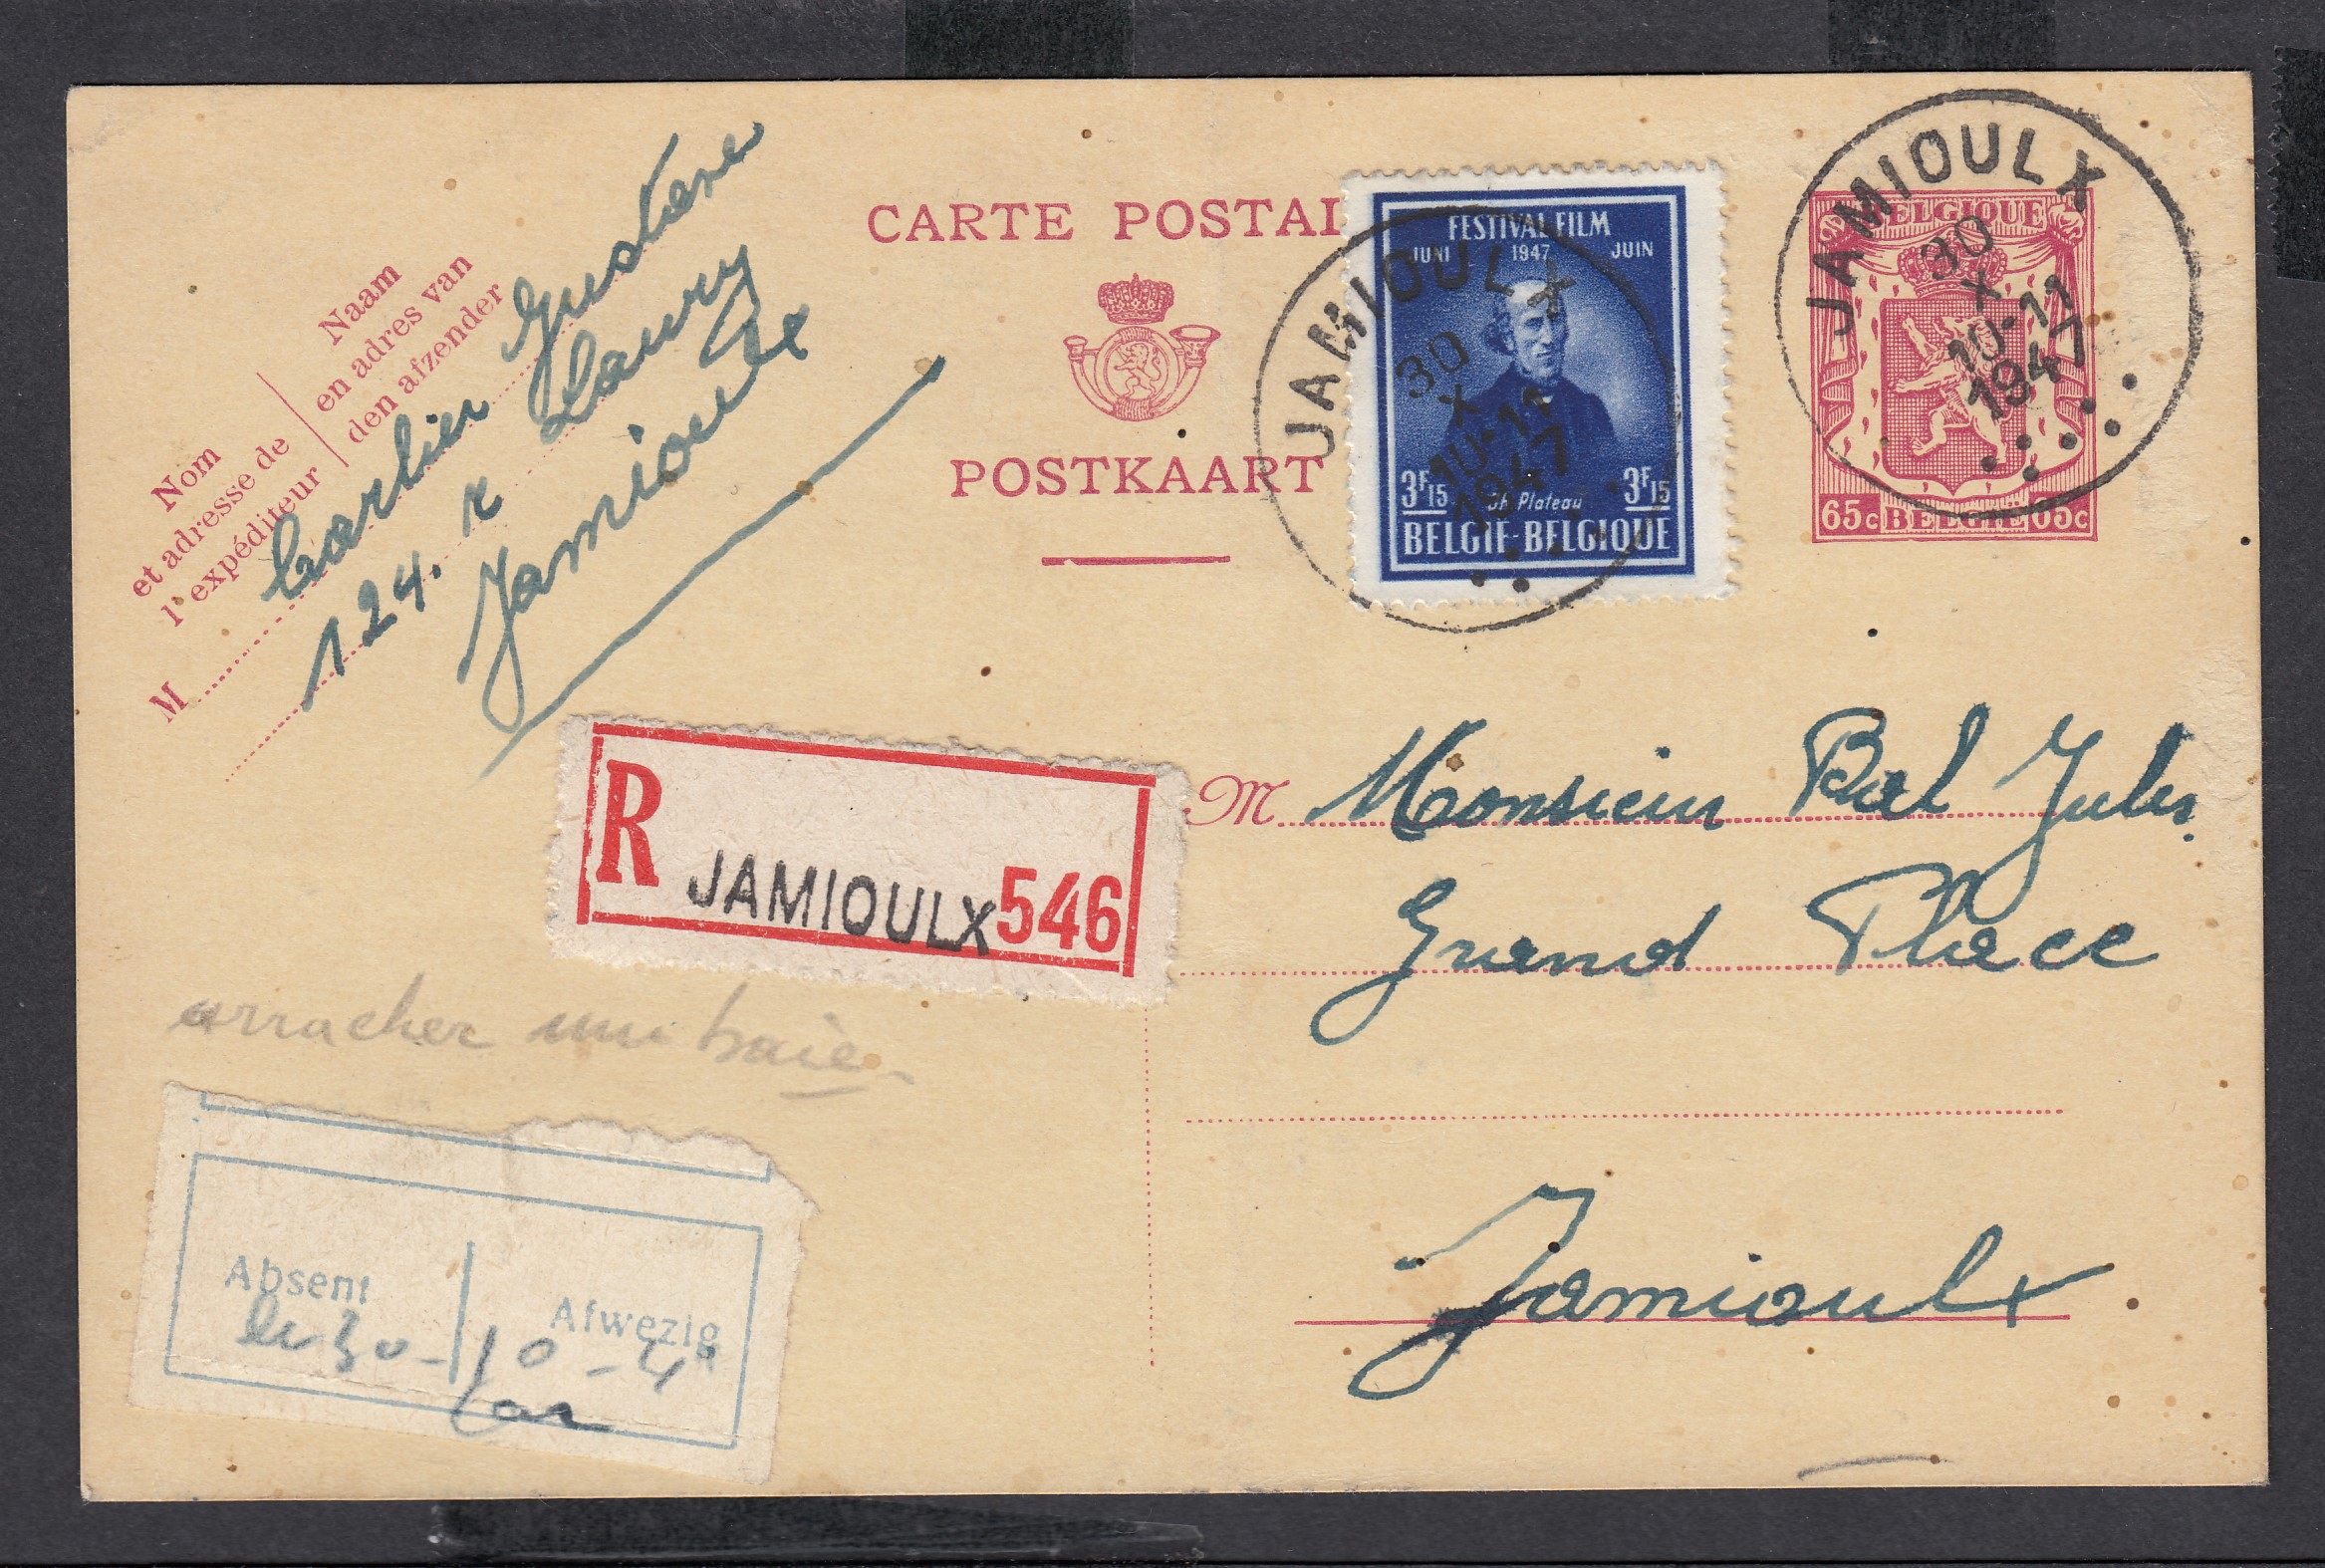 Naam
en adres van
den afzender
Nom
et adresse de
l'expéditeur
M
Carlier Gustave
124. r Lavry
Jamioulx
CARTE POSTAL
POSTKAART
FESTIVAL FILM
JUNI 1947 JUIN
3F15 Ch. Plateau 3F15
BELGIË-BELGIQUE
JAMIOULX
30
X
10-11
1947
BELGIQUE
65c BELGIE 65c
JAMIOULX
30
X
10-11
1947
R JAMIOULX 546
M Monsieur Bal Jules
Grand Place
Jamioulx
arracher une haie
Absent Afwezig
le 30-10-4